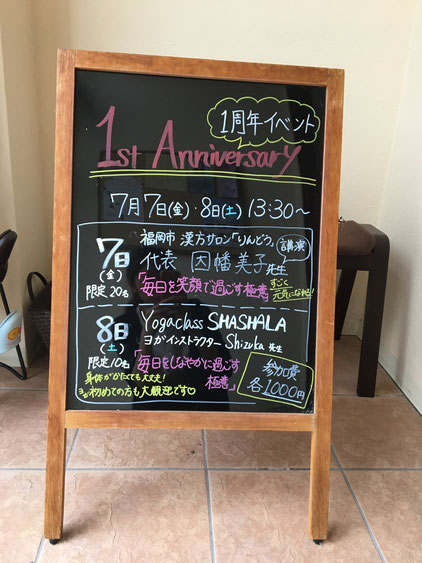 1周年イベント
1st Anniversary
7月7日(金)・8日(土) 13:30～
7日
(金)
限定20名
福岡市 漢方サロン「りんどう」
講演
代表 因幡美子先生
「毎日を笑顔で過ごす極意」
すごく
元気になれる!
8日
(土)
限定10名
Yogaclass SHASHALA
ヨガインストラクター Shizuka 先生
「毎日をしなやかに過ごす
極意」
身体がかたくても大丈夫!
ヨガ初めての方も大歓迎です♡
参加費
各1,000円